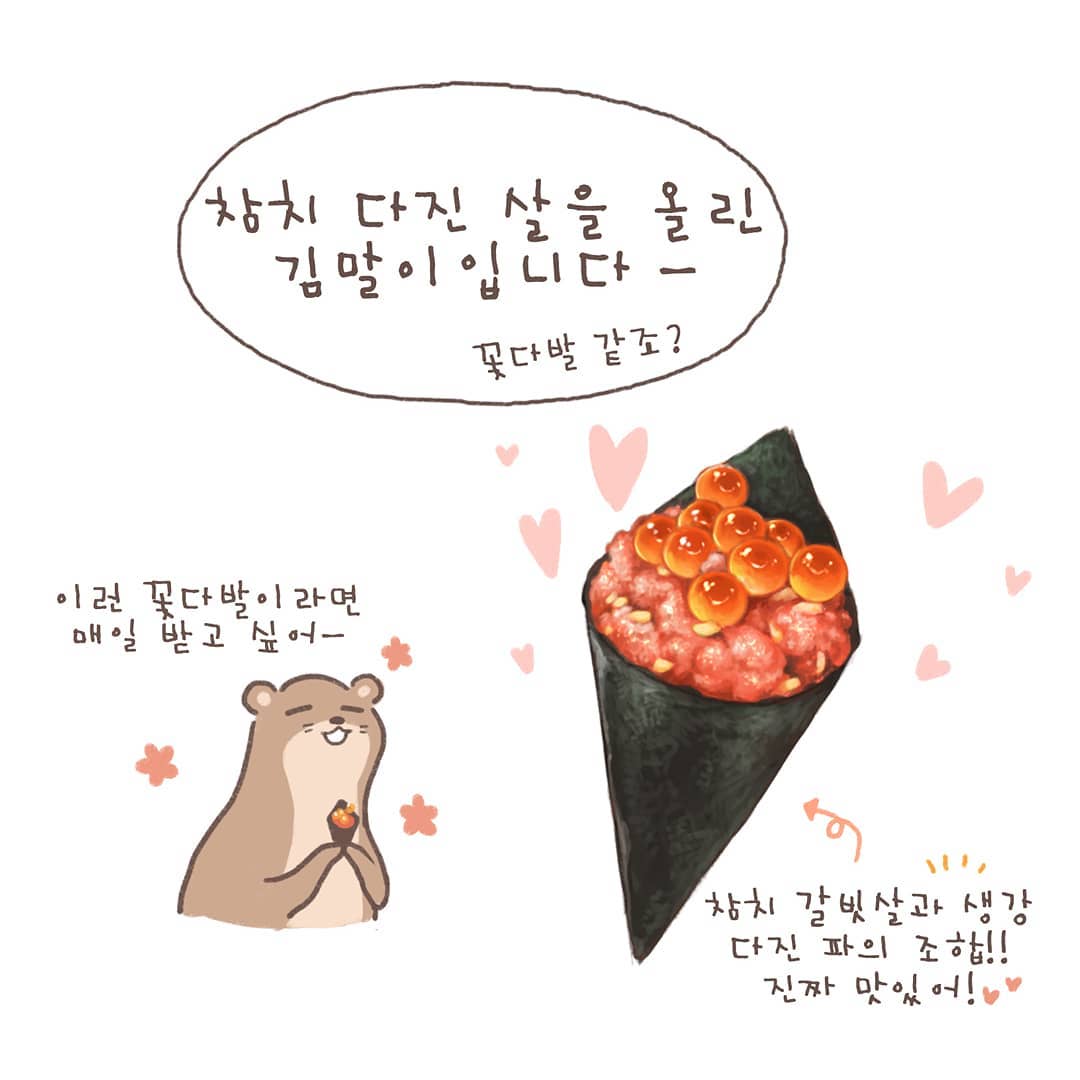 참치 다진 살을 올린
김말이입니다 —
꽃다발 같죠?
이런 꽃다발이라면
매일 받고 싶어—
참치 갈빗살과 생강
다진 파의 조합!!
진짜 맛있어!